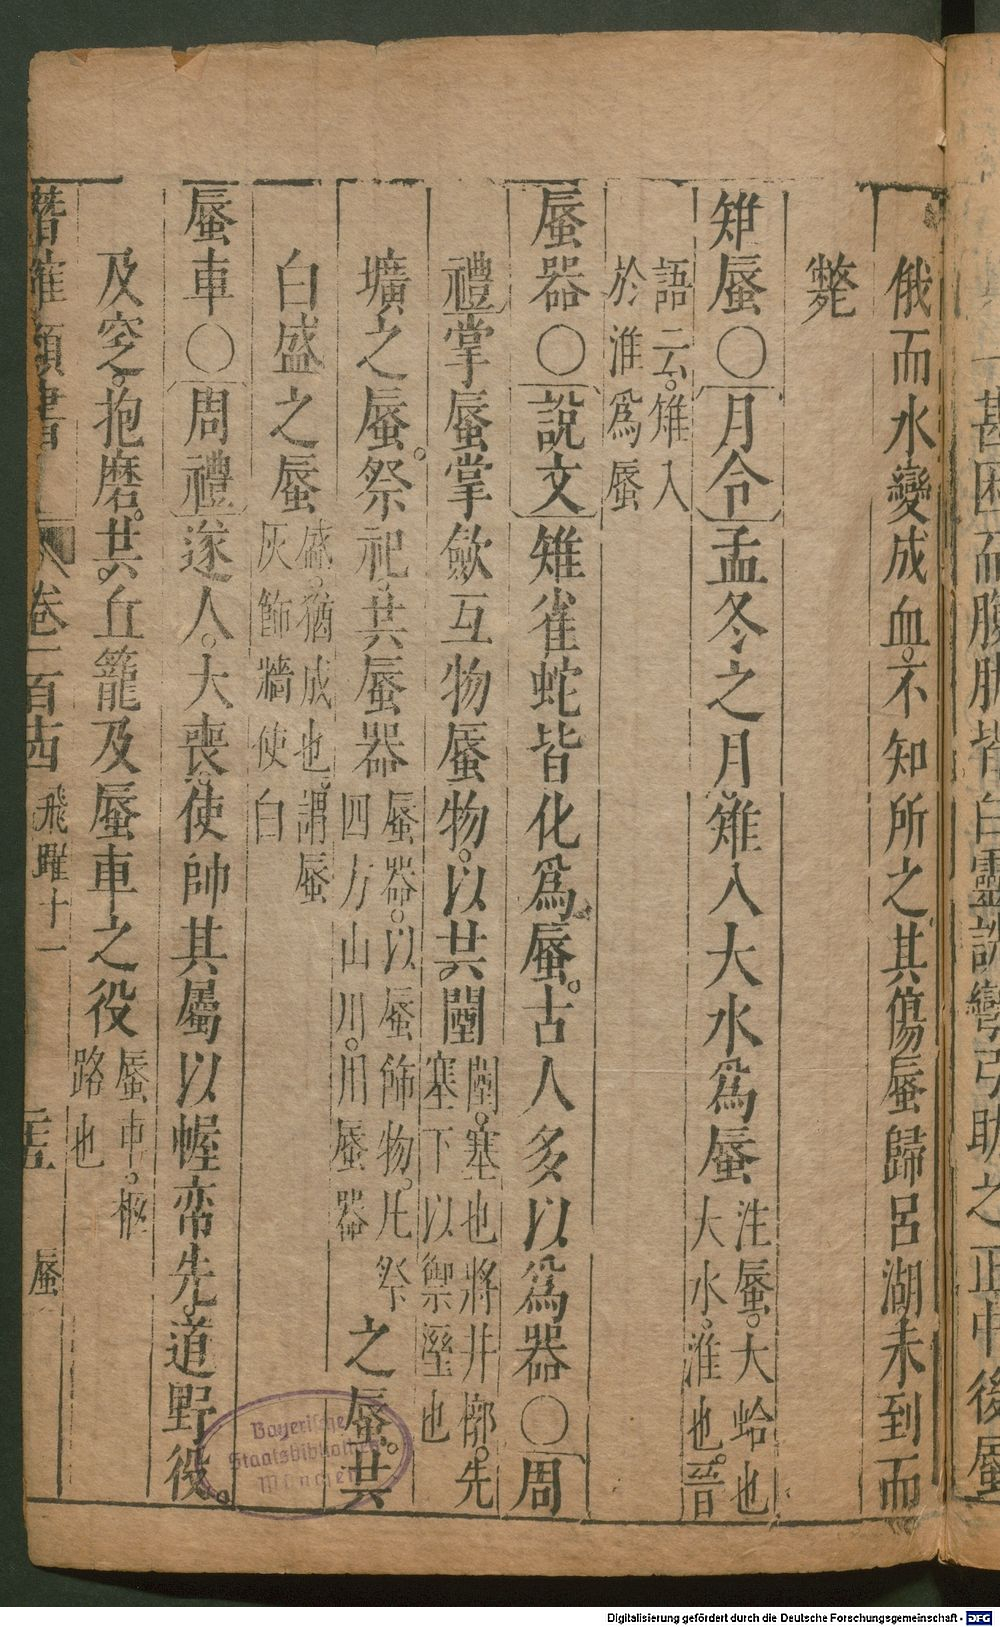 俄而水變成血。不知所之。其傷蜃歸呂湖。未到而
斃
雉蜃〇月令孟冬之月。雉入大水爲蜃
注蜃。大蛤也
大水。淮也。晉
語云。雉入
於淮爲蜃
蜃器〇說文雉雀蛇皆化爲蜃。古人多以爲器〇周
禮掌蜃掌斂互物蜃物。以共闉
闉。塞也將井槨。先
塞下以禦溼也
壙之蜃。祭祀。共蜃器
蜃器。以蜃飾物。凡祭
四方山川。用蜃器
之蜃。共
白盛之蜃
盛。猶成也。謂蜃
灰飾牆使白
蜃車〇周禮遂人。大喪。使帥其屬以幄帟先。道野役。
及窆。抱磨。共。丘籠及蜃車之役
蜃車。柩
路也
卷一百四 飛躍十一 蜃
Bayerische
Staatsbibliothek
München
Digitalisierung gefördert durch die Deutsche Forschungsgemeinschaft - DFG